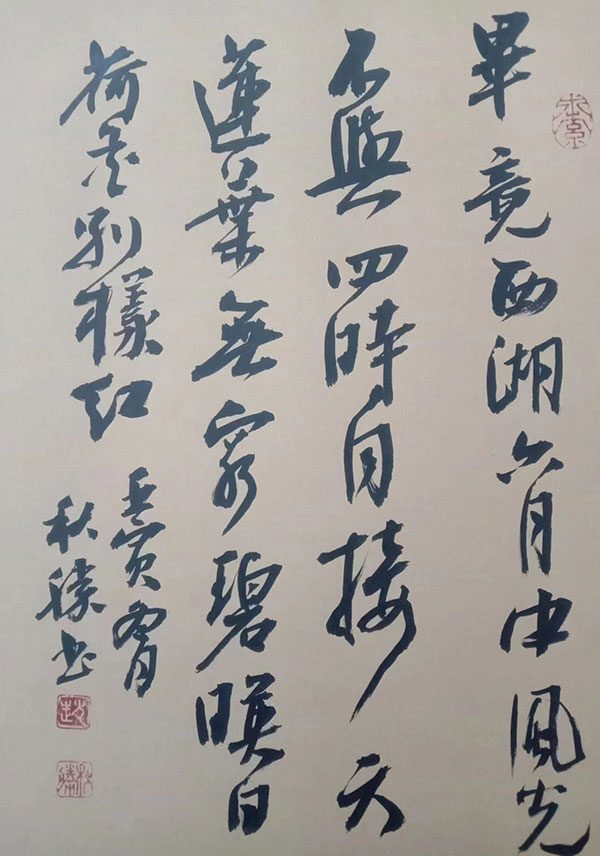 畢竟西湖六月中風光
不與四時同接天
蓮葉無窮碧暎日
荷花別樣紅
壬寅
秋勝書
趙
秋勝